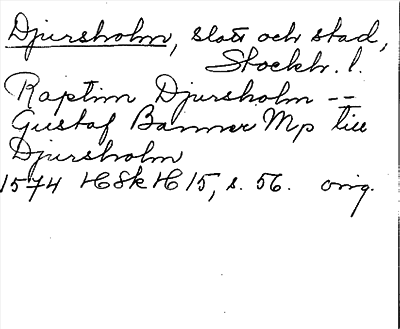 Djursholm, slott och stad,
Stockh. l.
Raptim Djursholm --
Gustaf Banner Mp till
Djursholm
1574 HSkH 15, s. 56. orig.